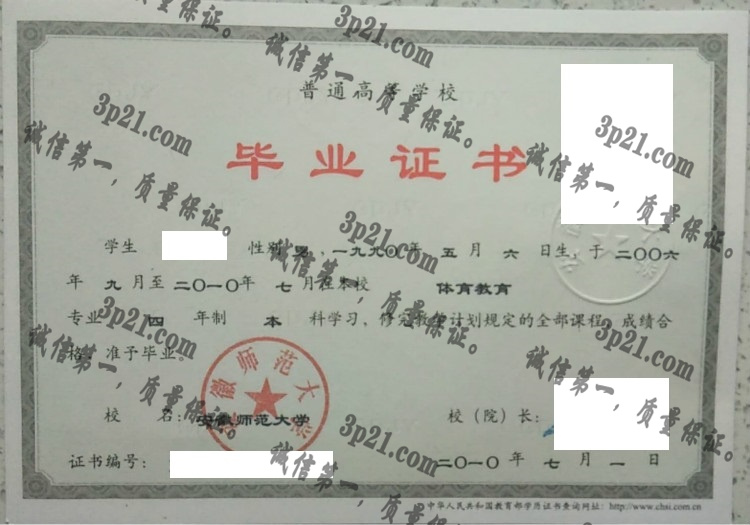 普通高等学校
毕业证书
学生 性别 男 ,一九九〇年 五 月 六 日生,于 二〇〇六
年 九 月至 二〇一〇年 七 月在本校 体育教育
专业 四 年制 本 科学习,修完教学计划规定的全部课程,成绩合
格,准予毕业。
校 名:安徽师范大学 校(院)长:
证书编号: 二〇一〇 年 七 月 一 日
中华人民共和国教育部学历证书查询网址:http://www.chsi.com.cn
安徽师范大学
3p21.com
诚信第一,质量保证。
3p21.com
诚信第一,质量保证。
3p21.com
诚信第一,质量保证。
3p21.com
诚信第一,质量保证。
3p21.com
诚信第一,质量保证。
3p21.com
诚信第一,质量保证。
3p21.com